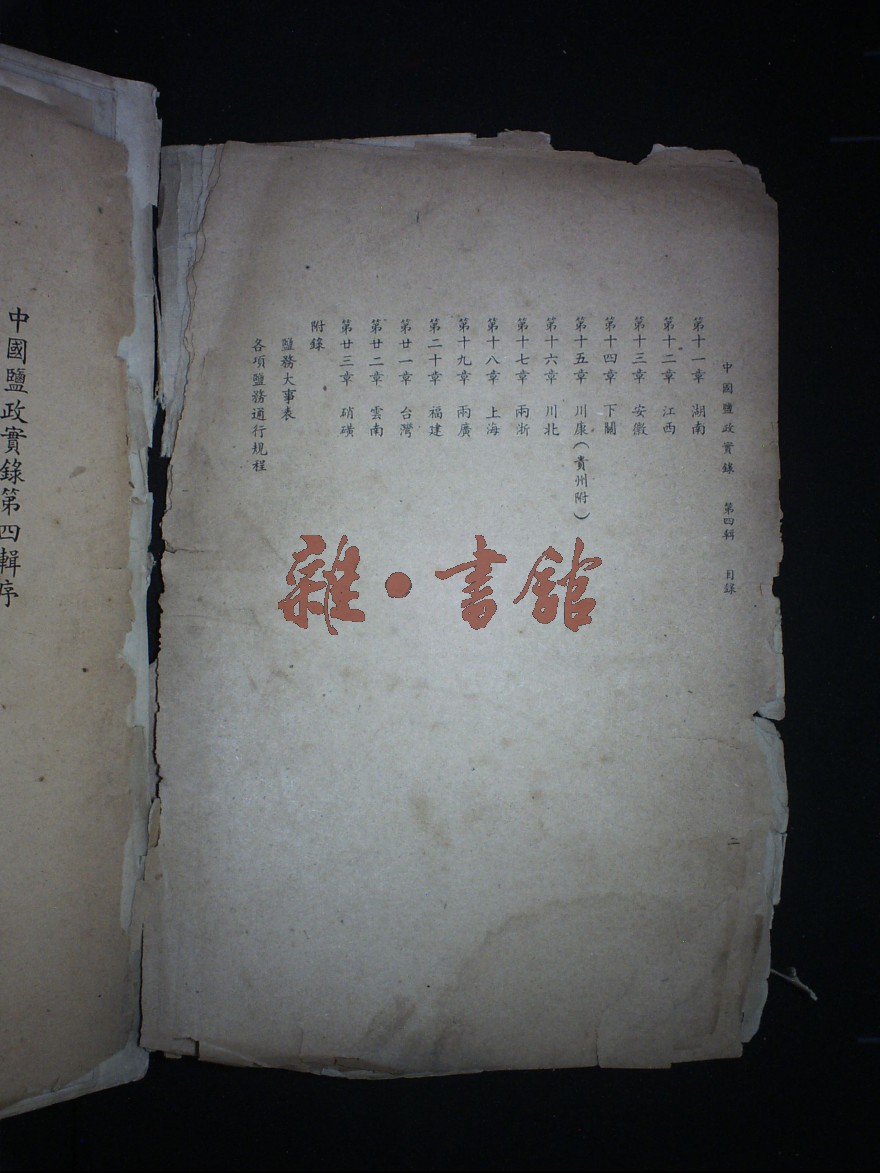 中國鹽政實錄 第四輯 目錄 二
第十一章 湖南
第十二章 江西
第十三章 安徽
第十四章 下關
第十五章 川康(貴州附)
第十六章 川北
第十七章 兩浙
第十八章 上海
第十九章 兩廣
第二十章 福建
第廿一章 台灣
第廿二章 雲南
第廿三章 硝磺
附錄
鹽務大事表
各項鹽務通行規程
中國鹽政實錄第四輯序
雜·書館